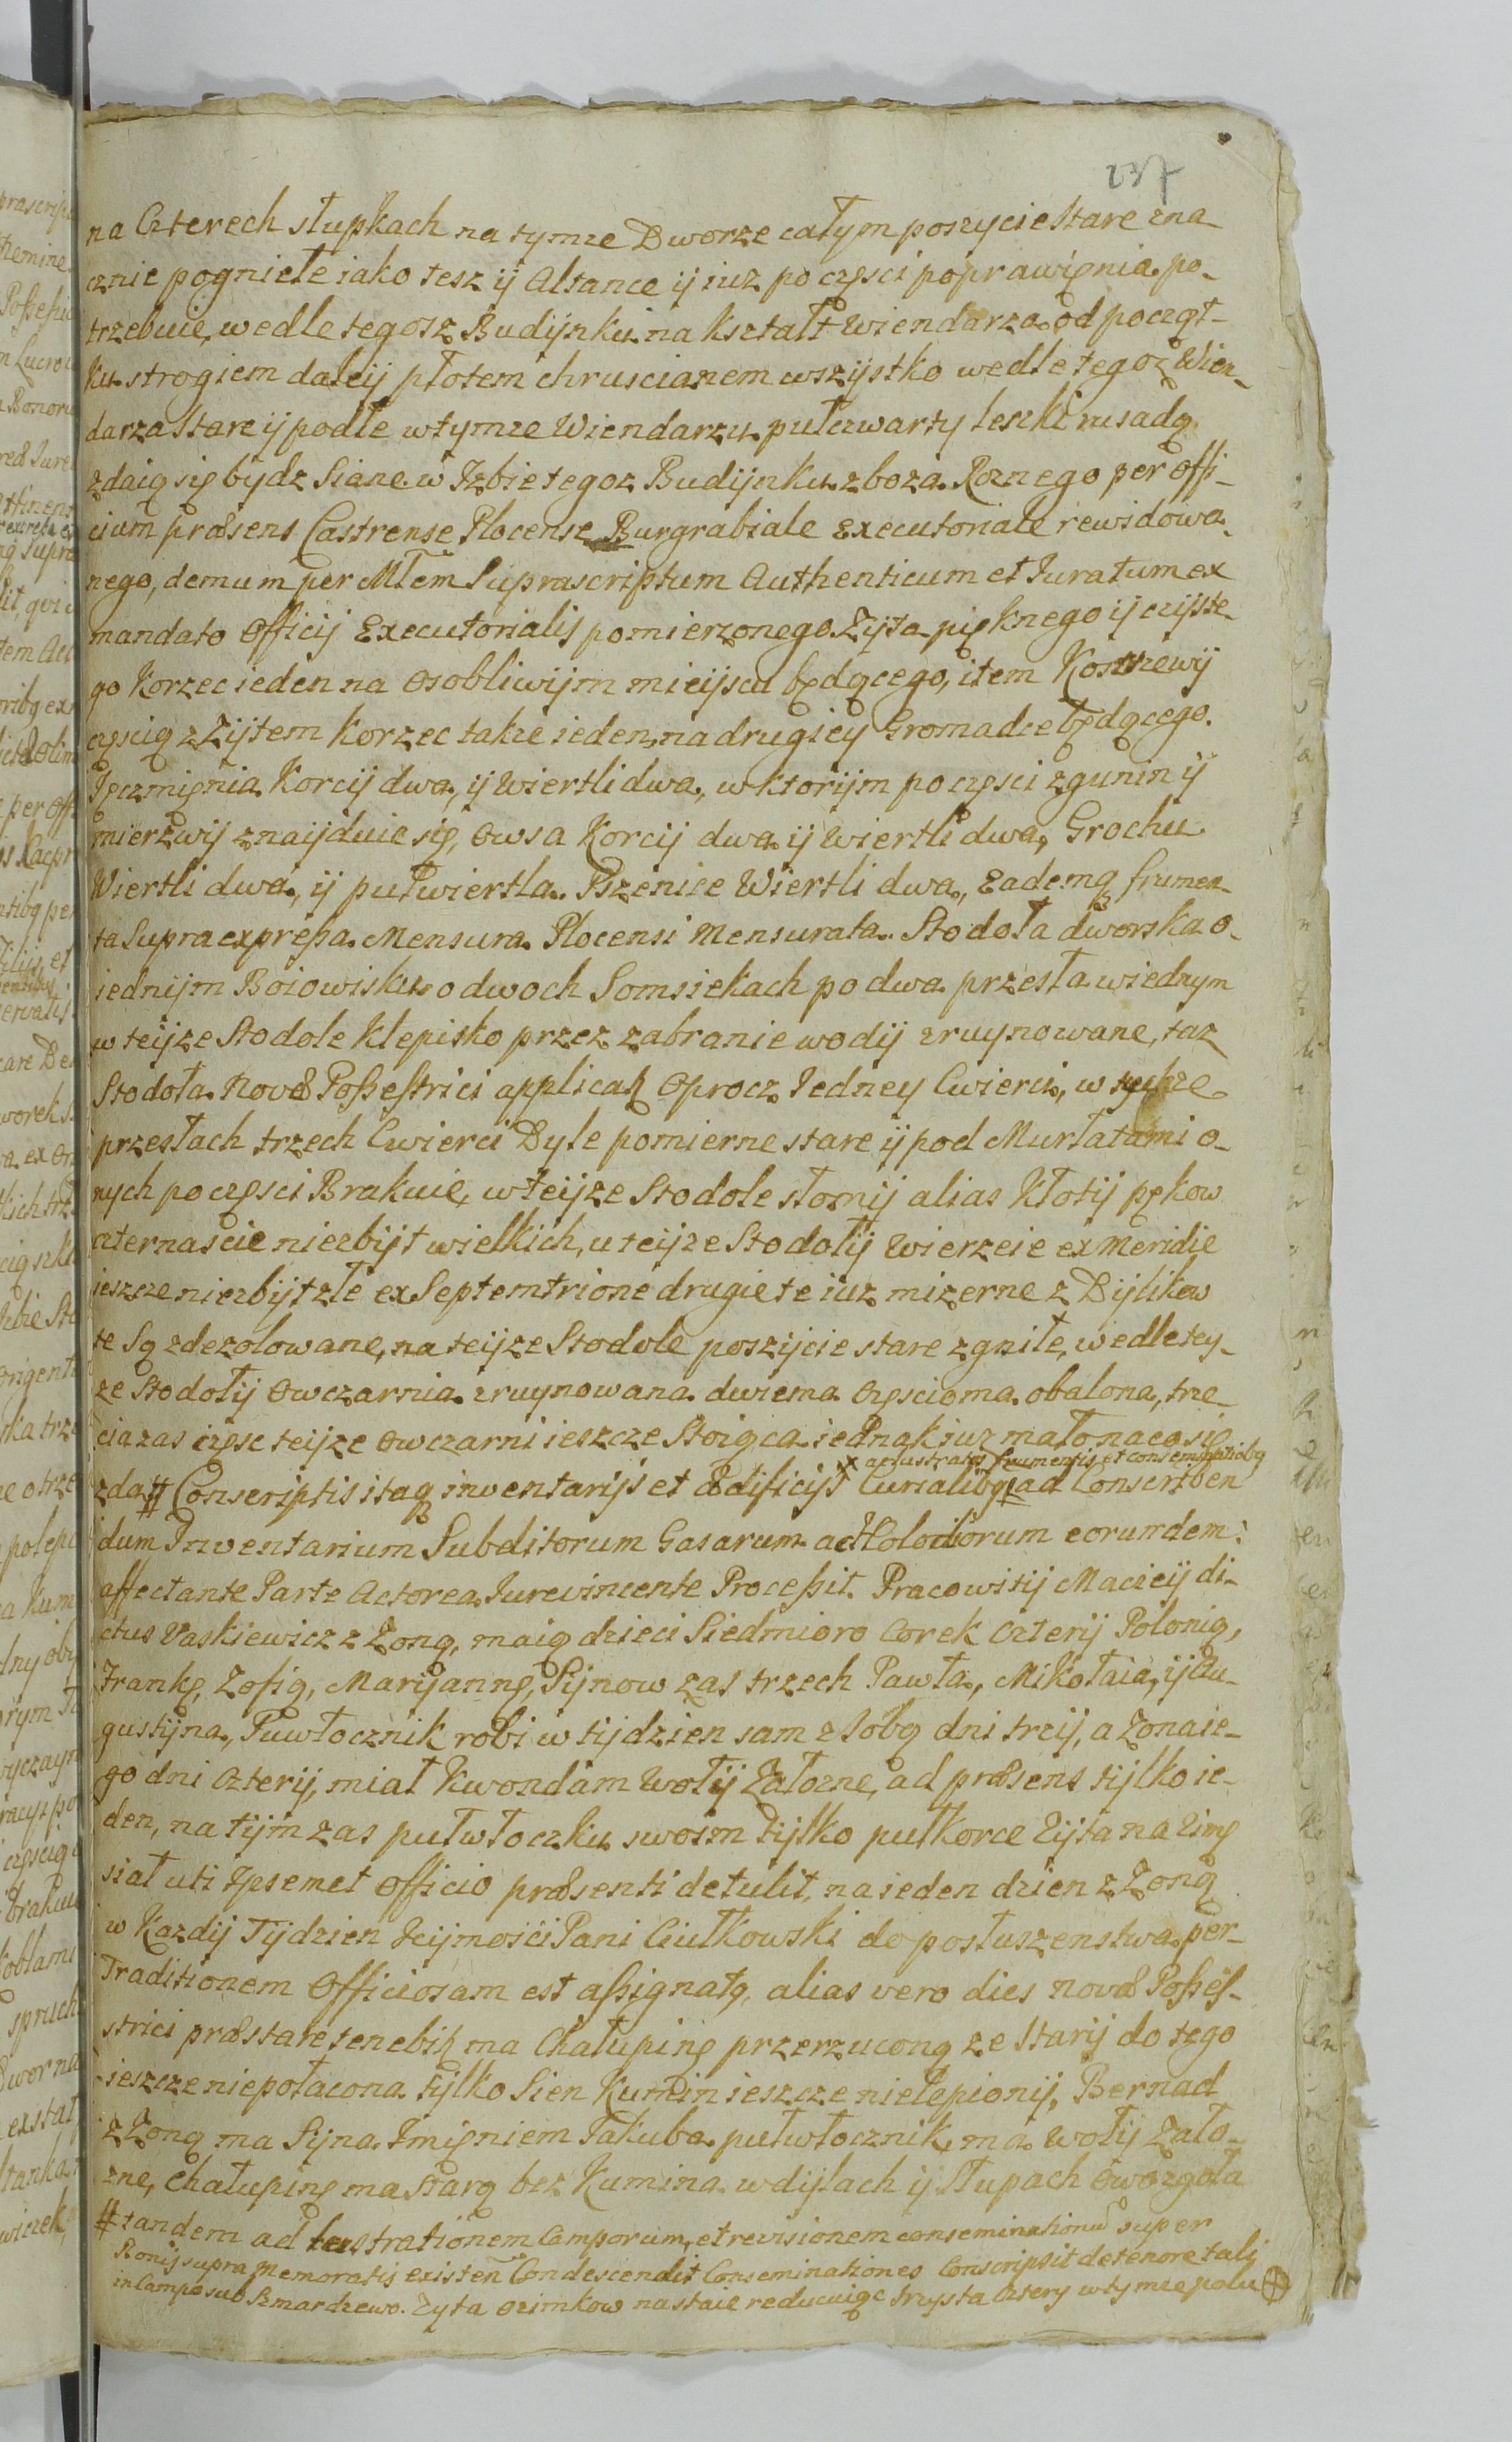 237
na Czterech słupkach na tymze Dworze całym poszycie stare zna
cznie pogniełe iako tesz ij Altance ij iuz po częsci poprawięnia po-
trzebuie, wedle tegosz Budijnku na kształt Wiendarza od począt-
ku strogiem daleij płotem chruscianem wszijstko wedle tegoz Wien-
darza stare ij podłe w tymze Wiendarzu pułczwarty leszki rusadą
zdaią się bydz Siane w Izbie tegoz Budijnku zboza Roznego per offi-
cium præsens Castrense Plocense Burgrabiale Executoriale rewidowa-
nego, demum per Mlem Suprascriptum Authenticum et Iuratum ex
mandato Officij Executorialis pomierzonego Zijta pięknego ij czijste-
go Korzec ieden na osobliwijm mieijscu będącego, item Kostrzewij
częscią z Zijtem Korzec takze ieden, na drugiey Gromadce będącego.
Ięczmięnia Korcij dwa, ij Wiertli dwa, w ktorijm po częsci zgunin ij
mierzwij znaijduie się, Owsa Korcij dwa ij Wiertli dwa, Grochu
Wiertli dwa, ij pułwiertla. Pszenice Wiertli dwa, Eademq frumen-
ta Supra expressa Mensura Plocensi Mensurata. Stodoła dworska o-
iednijm Boiowisku o dwoch Somsiekach po dwa przesła w iednym
w teijze Stodole klepisko przez zabranie wodij zruynowane, taz
Stodoła Novæ Possestrici applicat Oprocz Iedney Cwierci, w teyze
przesłach trzech Cwierci Dyle pomierne stare ij pod Murłatami o-
nych po częsci Brakuie, w teijze Stodole słomij alias Kłotij pękow
czternascie niezbijt wielkich, u teijze Stodołij Wierzeie ex Meridie
ieszcze niezbijt złe ex Septemtrione drugie te iuz mizerne z Dijlikow
te Są zdezolowane, na teijze Stodole poszijcie stare zgniłe, wedle tey-
ze Stodołij Owczarnia zruynowana dwiema Częscioma obalona, trze-
cia zas częsc teijze Owczarni ieszcze Stoiąca iednak iuz mało na co się
x ac lustratis frumentis et conseminationibq
zda # Conscriptis itaq inventarijs et ædificijs x Curialibq ad Conscriben
dum Inventarium Subditorum Casarum ac Holodiorum eorumdem:
affectante Parte Actorea Iurevincente Processit. Pracowitij Macieij di-
ctus Vaskiewicz z Zoną, maią dzieci Siedmioro Corek Czterij Polonią,
Franke, Zofią, Marijannę, Sijnow zas trzech Pawła, Mikołaia, ij Au-
gustijna, Puwłocznik robi w tijdzien sam z Sobą dni trzij, a Zona ie-
go dni Czterij, miał Kwondam Wołij Załozne, ad præsens tijlko ie-
den, na tijm zas pułwłoczku swoim tijlko pułkorce Zijta na Zimę
siał uti Ipsemet Officio præsenti detulit, na ieden dzien z Zoną
w Kazdij Tijdzien Ieijmości Pani Ciułkowski do posłuszenstwa per-
Traditionem Officiosam est assignatq, alias vero dies novæ Posses-
strici præstare tenebit ma Chałupinę przerzuconą ze Starij do tego
ieszcze niepołacona tijlko Sien Kumin ieszcze nielepionij, Bernad
z Zoną ma Sijna Imięniem Iakuba pułwłocznik, ma wołij Zało-
zne, Chałupinę ma starą bez Kumina w dijlach ij Słupach Owozgoła
# tandem ad lustrationem Camporum, et revisionem conseminationu super
Bonis supra memoratis existen Condescendit Conseminationes Conscripsit de tenore tali
in Campo sub Szmardzewo. Zyta ozimkow na staie reducuiąc trzysta Cztery w tymze polu ⊕